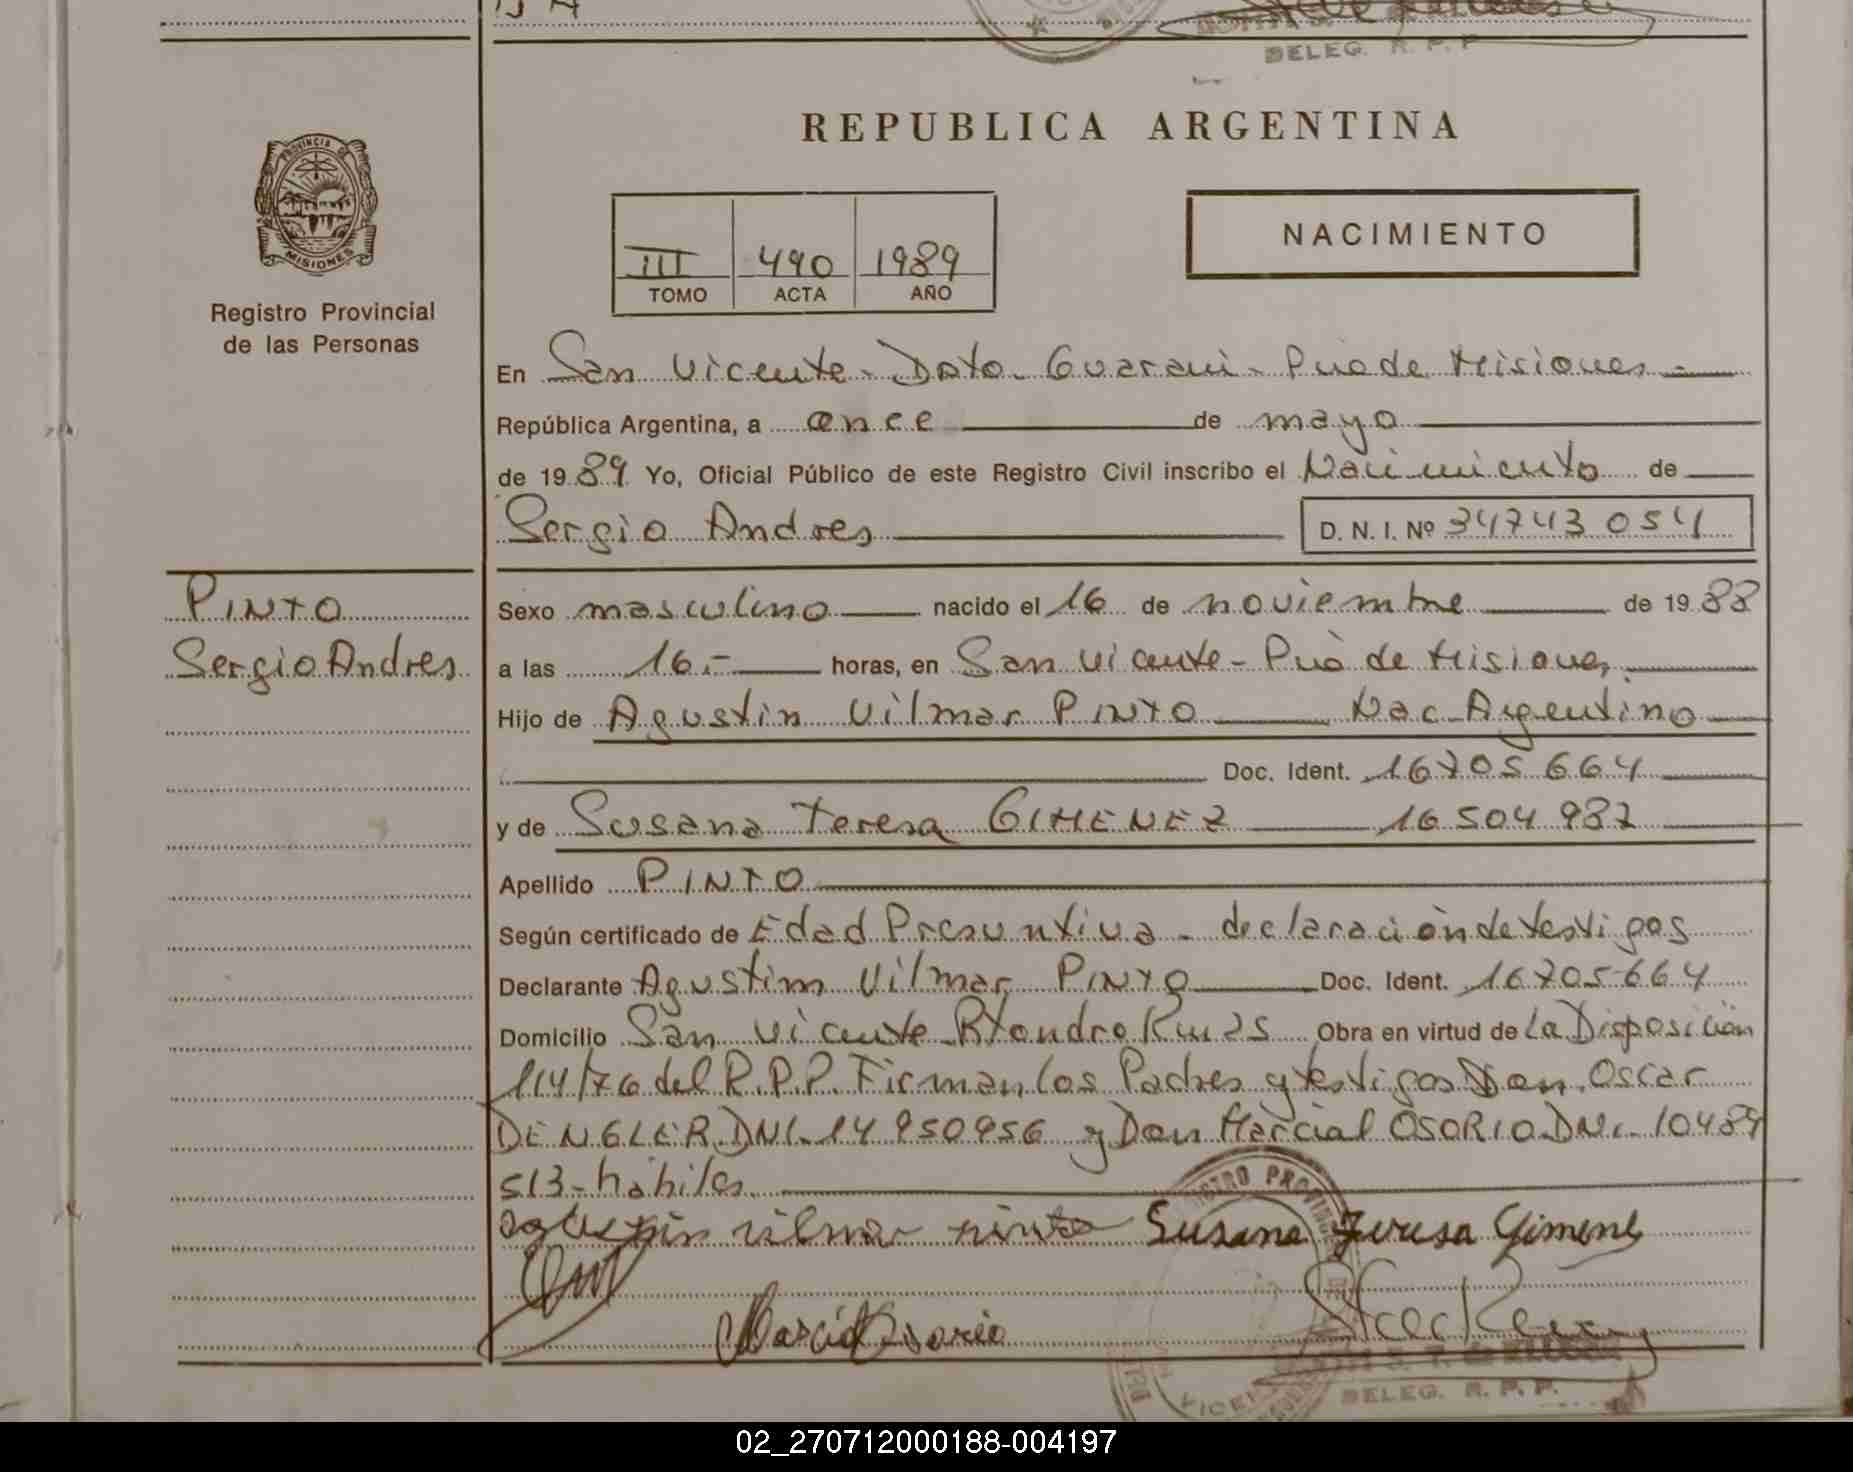 DELEG. R. P. P
REPUBLICA ARGENTINA
PROVINCIA DE
MISIONES
Registro Provincial
de las Personas
III 490 1989
TOMO ACTA AÑO
NACIMIENTO
En San Vicente - Dpto - Guarani - Pcia de Misiones
República Argentina, a once de mayo
de 1989 Yo, Oficial Público de este Registro Civil inscribo el Nacimiento de
Sergio Andres D. N. I. Nº 34743054
PINTO
Sergio Andres
Sexo masculino nacido el 16 de noviembre de 1988
a las 16.- horas, en San Vicente - Pcia de Misiones
Hijo de Agustin Vilmar PINTO Nac. Argentino
Doc. Ident. 16705664
y de Susana Teresa GIMENEZ 16504987
Apellido PINTO
Según certificado de Edad Presuntiva - declaración de testigos
Declarante Agustin Vilmar PINTO Doc. Ident. 16705664
Domicilio San Vicente Obra en virtud de La Disposición
114/76 del R.P.P. Firman los Padres y testigos Don Oscar
DENGLER DNI. 14950956 y Don Marcial OSORIO DNI. 10489
513 - hábiles
agustin vilmar pinto Susana Teresa Gimenez
Marcial Osorio
DELEG. R. P. P.
02_270712000188-004197